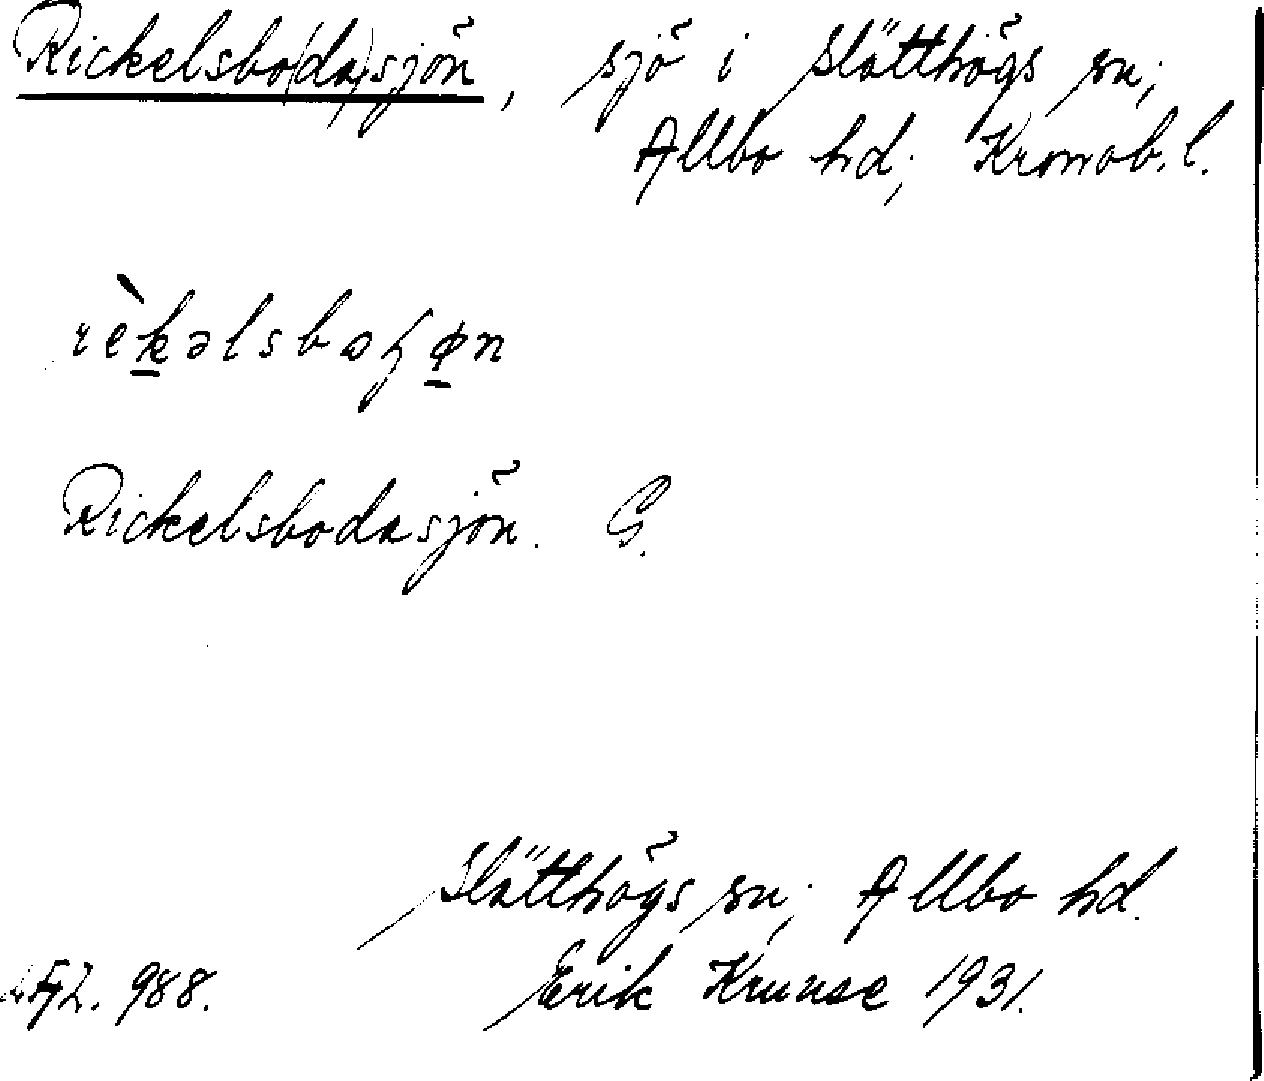 Rickelsbo(da)sjön, sjö i Slätthögs sn;
Allbo hd; Kronob. l.
rèkəlsboɧøn
Rickelsbodasjön. G.
Slätthögs sn; Allbo hd.
988. Erik Kruuse 1931.